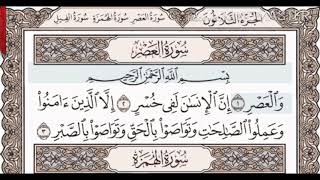 الجزء الثلاثون
سورة العصر سورة الهمزة سورة الفيل
سُورَةُ العَصْرِ
بِسْمِ اللَّهِ الرَّحْمَٰنِ الرَّحِيمِ
وَالْعَصْرِ ١ إِنَّ الْإِنسَٰنَ لَفِى خُسْرٍ ٢ إِلَّا الَّذِينَ ءَامَنُوا
وَعَمِلُوا الصَّٰلِحَٰتِ وَتَوَاصَوْا بِالْحَقِّ وَتَوَاصَوْا بِالصَّبْرِ ٣
سُورَةُ الهُمَزَةِ